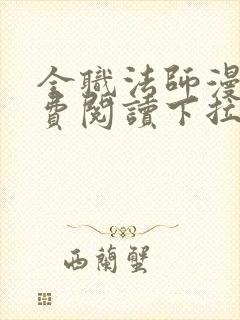 全職法師漫
費閱讀下拉
西蘭蟹